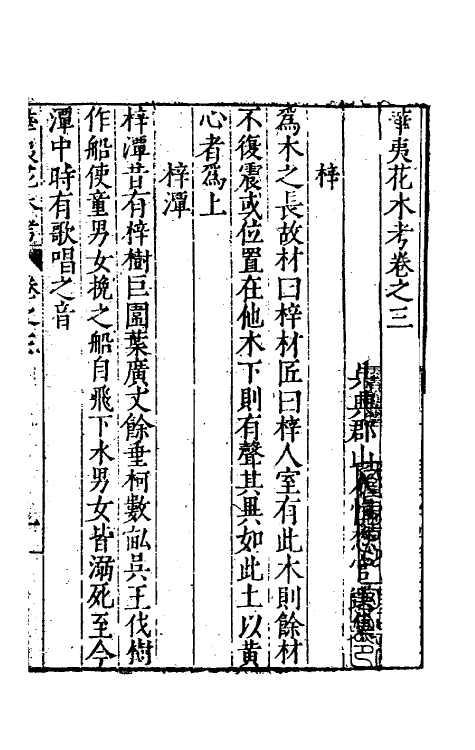 華夷花木考卷之三
吳興郡山人慎懋官選集
梓
為木之長故材曰梓材匠曰梓人室有此木則餘材
不復震或位置在他木下則有聲其異如此土以黄
心者為上
梓潭
梓潭昔有梓樹巨圍葉廣丈餘垂柯數畝吳王伐樹
作船使童男女挽之船自飛下水男女皆溺死至今
潭中時有歌唱之音
華夷花木考 卷之三 一